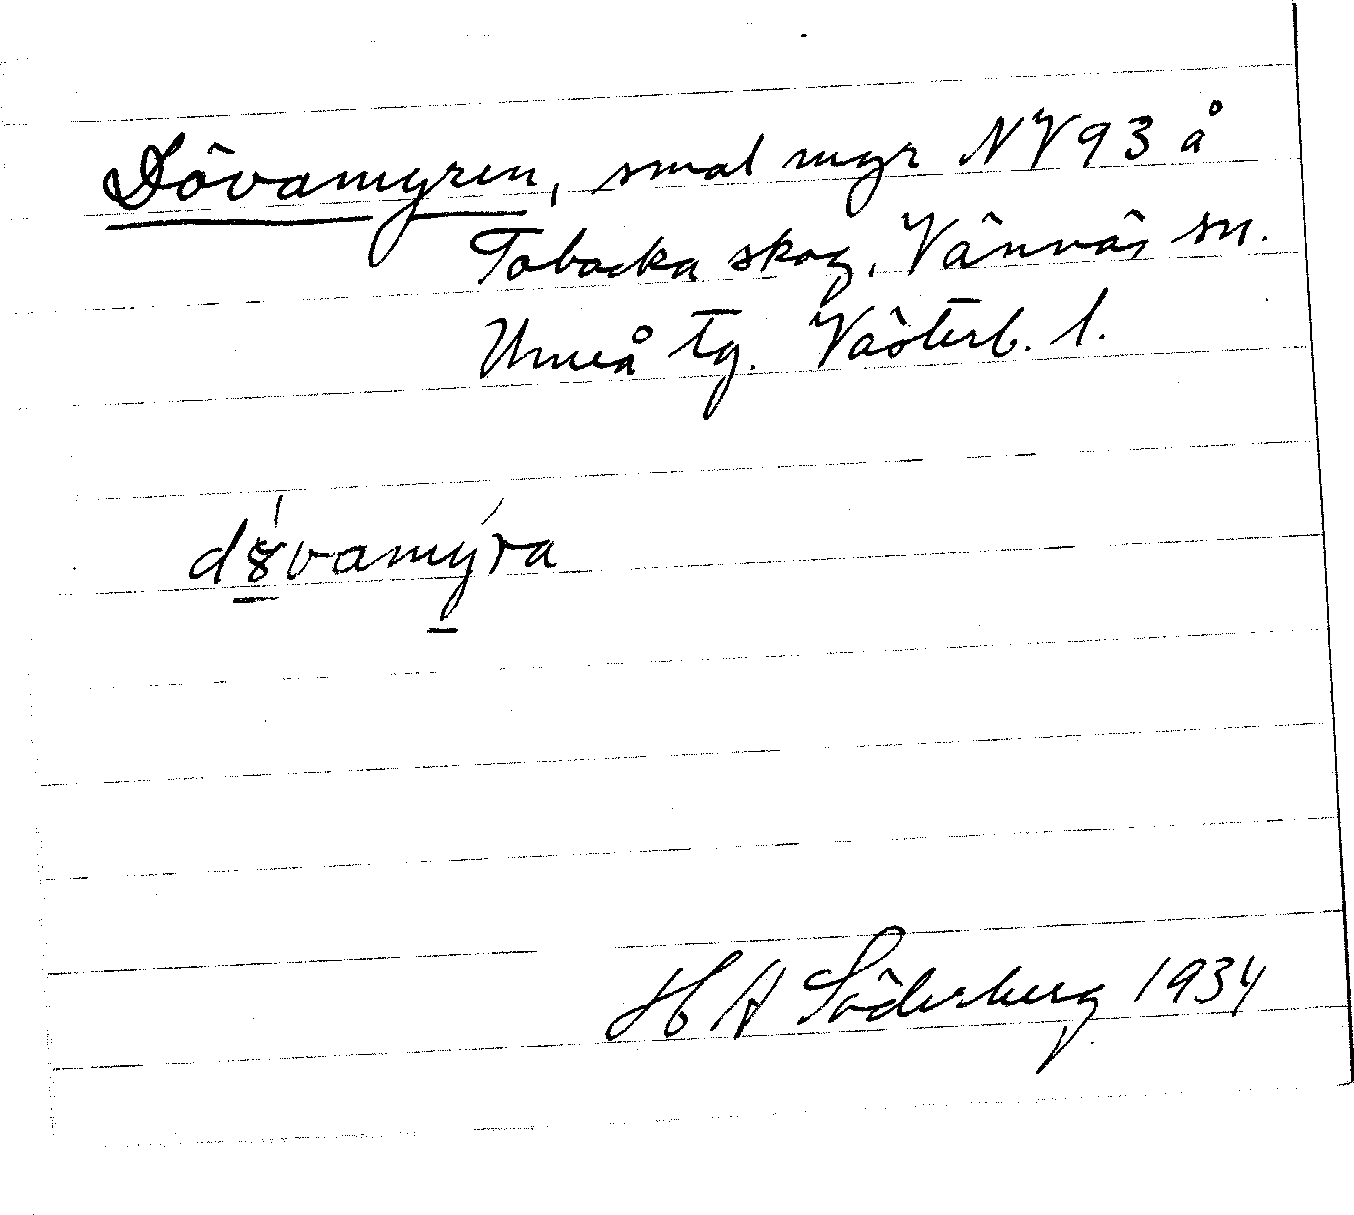 Dövamyren, smal myr NV 93 å
Tobacka skog, Vännäs sn.
Umeå tg. Västerb. l.
dövamýra
H A Söderberg 1934